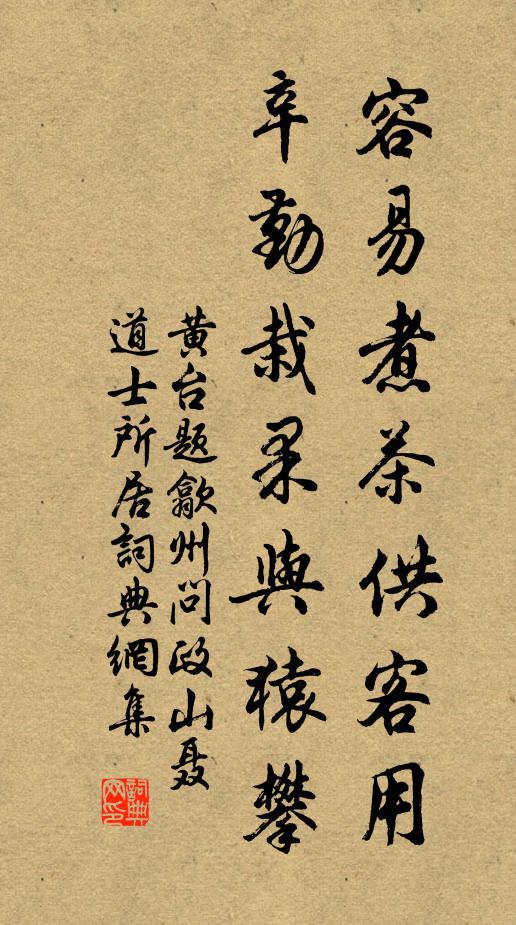 容易煮茶供客用
辛勤栽果與猿攀
黄台题歙州问政山聂
道士所居詞典網集
詞典网印